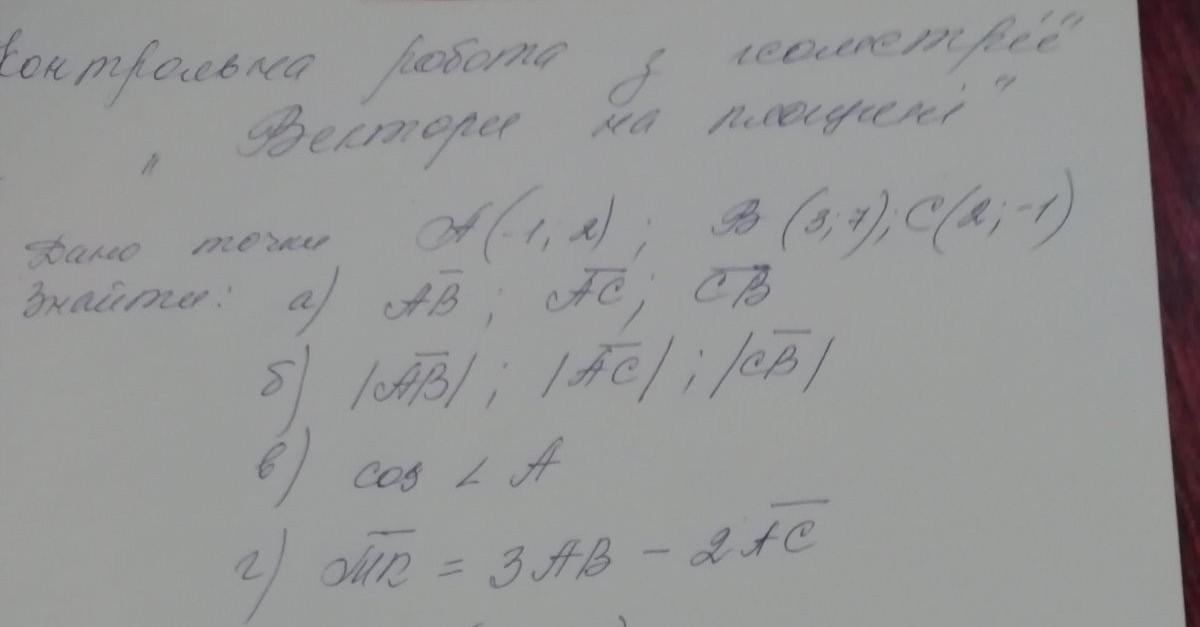 Контрольна робота з геометрії
" Вектори на площині "
Дано точки A(-1; 2); B(3; 7); C(2; -1)
Знайти: а) A̅B̅; A̅C̅; C̅B̅
б) |A̅B̅|; |A̅C̅|; |C̅B̅|
в) cos ∠ A
г) M̅K̅ = 3AB - 2A̅C̅